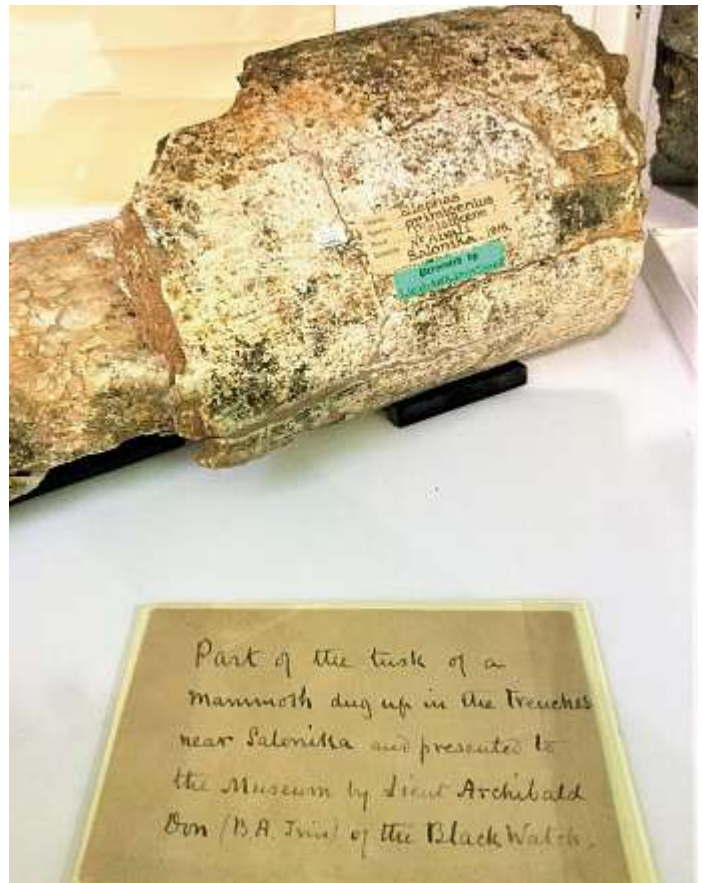 Elephas
primigenius
Pleistocene
Salonika
Part of the tusk of a
Mammoth dug up in the Trenches
near Salonika and presented to
the Museum by Lieut Archibald
Don (B.A. Trin) of the Black Watch.